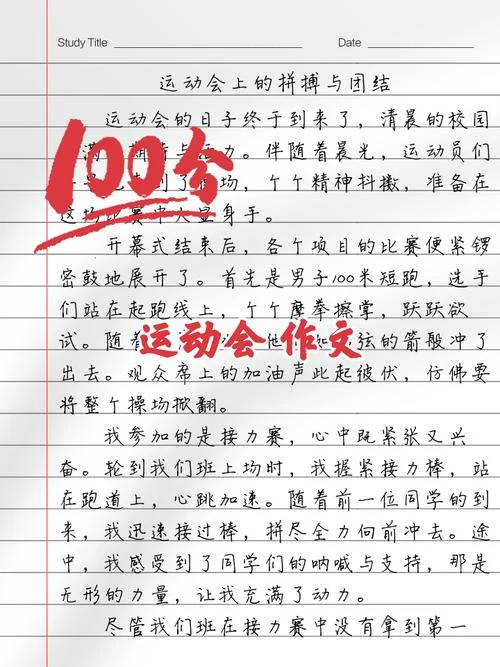 Study Title
Date
运动会上的拼搏与团结
运动会的日子终于到来了，清晨的校园
满 与 力。伴随着晨光，运动员们
到了 场，个个精神抖擞，准备在
这场比赛中大显身手。
100分
开幕式结束后，各个项目的比赛便紧锣
密鼓地展开了。首先是男子100米短跑，选手
们站在起跑线上，个个摩拳擦掌，跃跃欲
试。随着 他 如 弦的箭般冲了
运动会 作文
出去。观众席上的加油声此起彼伏，仿佛要
将整个操场掀翻。
我参加的是接力赛，心中既紧张又兴
奋。轮到我们班上场时，我握紧接力棒，站
在跑道上，心跳加速。随着前一位同学的到
来，我迅速接过棒，拼尽全力向前冲去。途
中，我感受到了同学们的呐喊与支持，那是
无形的力量，让我充满了动力。
尽管我们班在接力赛中没有拿到第一